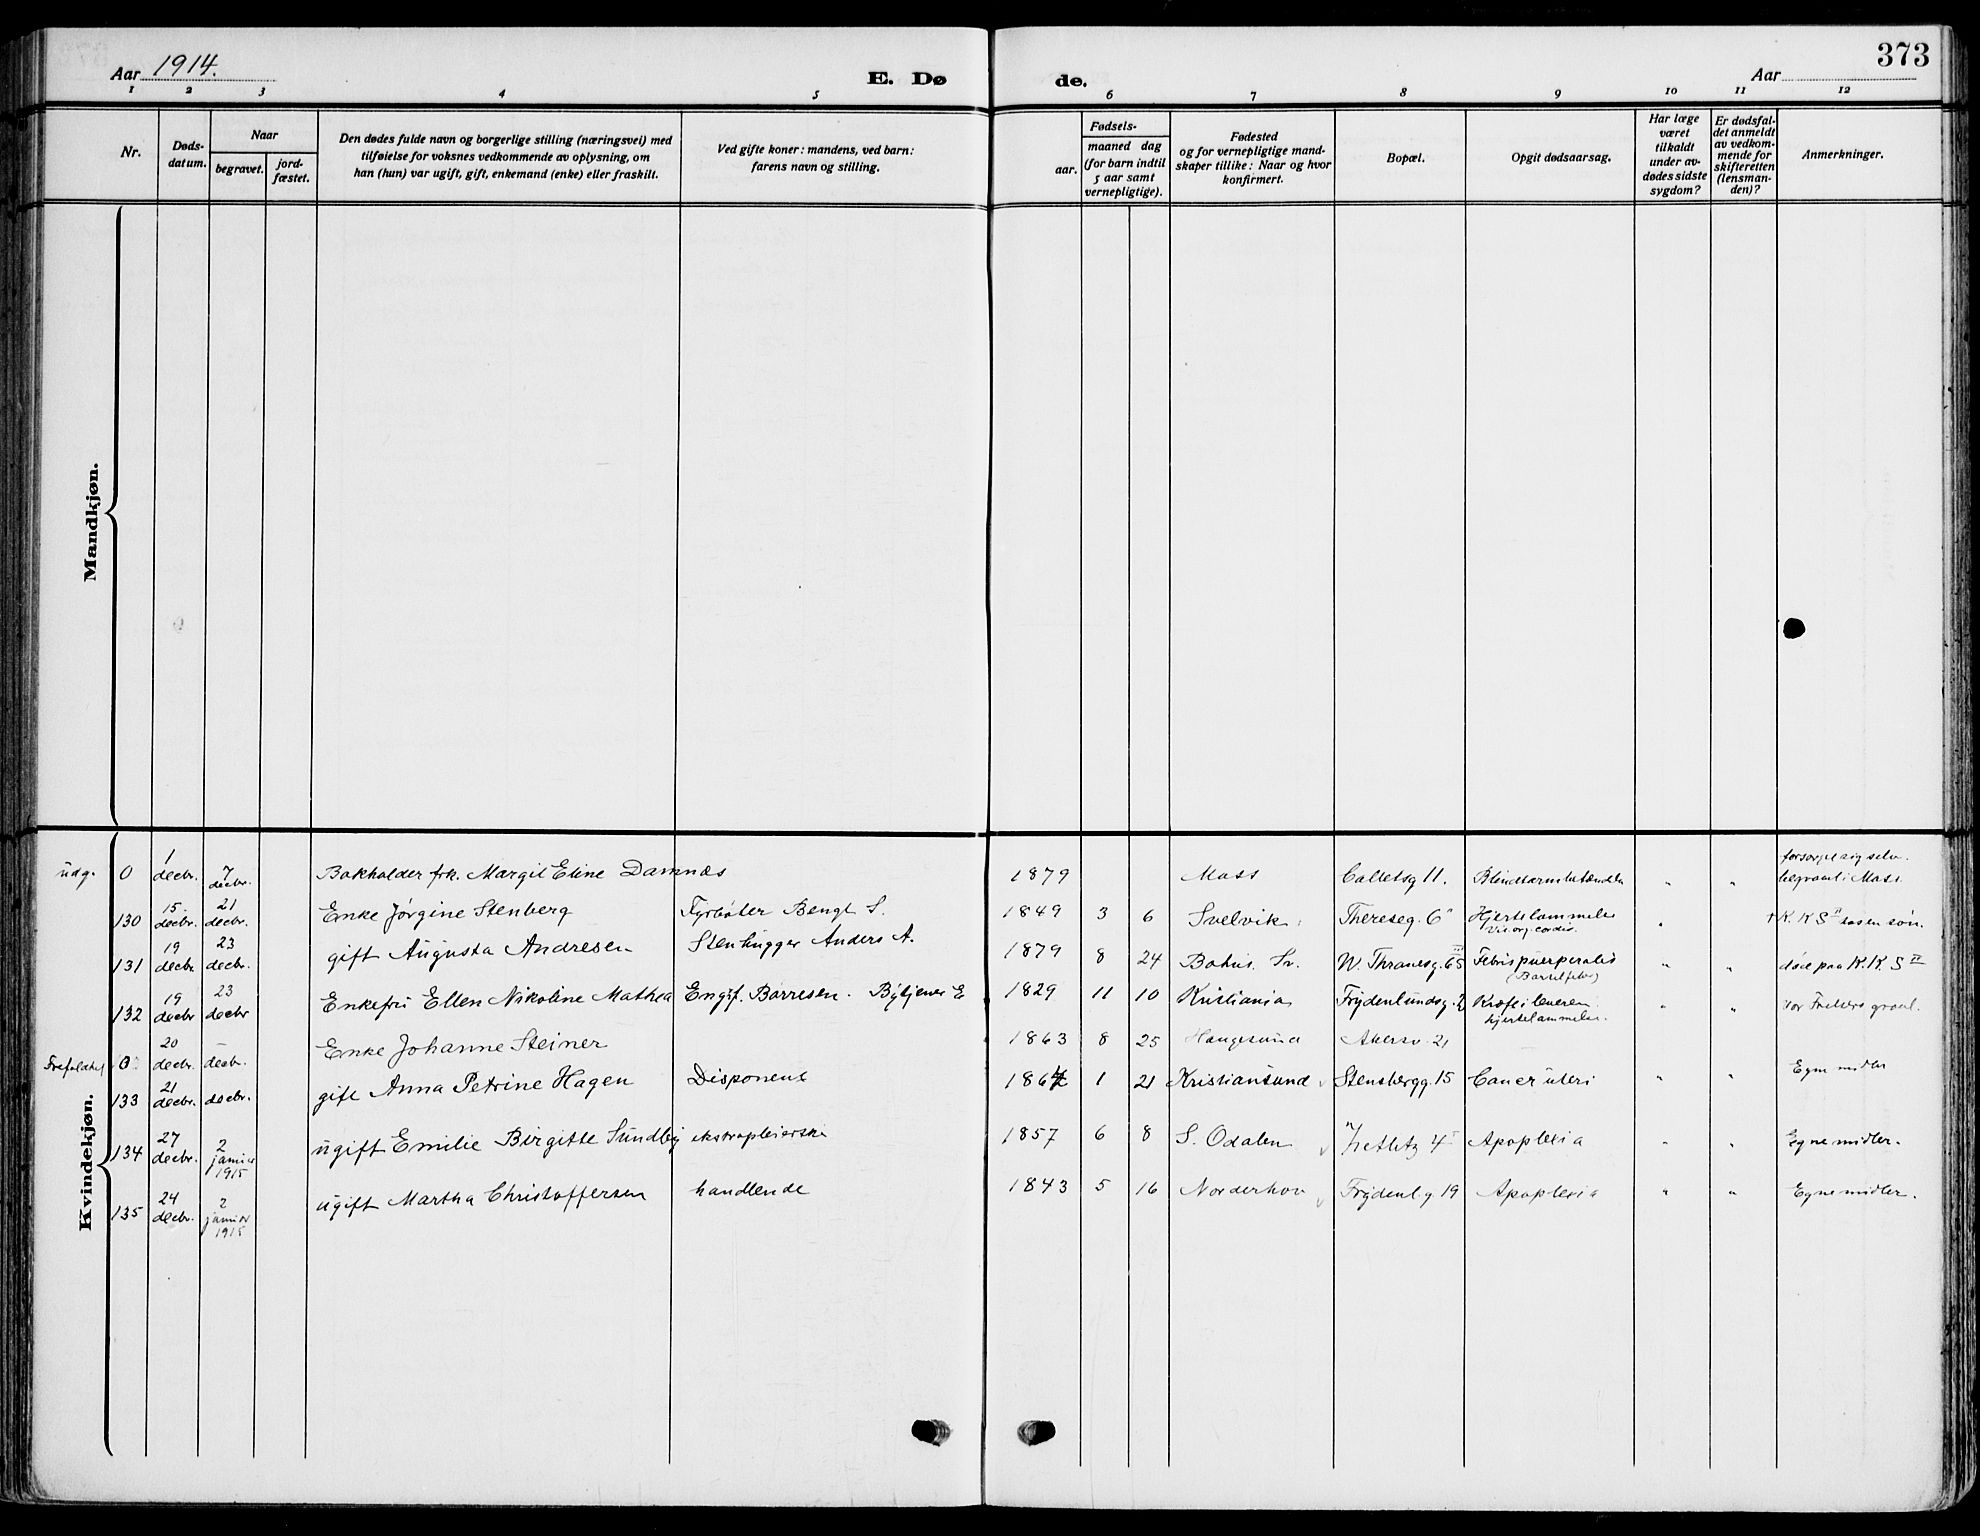 Aar 1914.
E. Dø
de.
Aar
373
1 2 3 4 5 6 7 8 9 10 11 12
Nr.
Døds-
datum.
Naar
begravet.
jord-
fæstet.
Den dødes fulde navn og borgerlige stilling (næringsvei) med
tilføielse for voksnes vedkommende av oplysning, om
han (hun) var ugift, gift, enkemand (enke) eller fraskilt.
Ved gifte koner: mandens, ved barn:
farens navn og stilling.
aar.
Fødsels-
maaned dag
(for barn indtil
5 aar samt
vernepligtige).
Fødested
og for vernepligtige mand-
skaper tillike: Naar og hvor
konfirmert.
Bopæl.
Opgit dødsaarsag.
Har læge
været
tilkaldt
under av-
dødes sidste
sygdom?
Er dødsfal-
det anmeldt
av vedkom-
mende for
skifteretten
(lensman-
den)?
Anmerkninger.
Mandkjøn.
Kvindekjøn.
udg. 0 1 decbr. 7 decbr. Bokholder frk. Margit Eline Damnæs 1879 Moss Colletsg 11. " " begravet i Moss
130 15. decbr. 21 decbr. Enke Jørgine Stenberg Fyrbøter Bengt S. 1849 3 6 Svelvik Thereseg. 6 Hjertelammelse Vit. org. cordis. "
131 19 decbr 23 decbr. gift Augusta Andresen Stenhugger Anders A. 1879 8 24 Bohus. Sv. W. Thranesg. 65 III Febris puerperalis (Barselfeber) " " død paa K. K. S II
132 19 decbr 23 decbr Enkefru Ellen Nikoline Mathea Engif. Borresen. 1829 11 10 Kristiania Frydenlundsg. 2 Kræft i leveren. hjertelammelse. " " Vor Frelsers gravl.
0 20 decbr. – decbr. Enke Johanne Steiner 1863 8 25 Haugesund Akersv. 21
133 21 decbr. decbr. gift Anna Petrine Hagen Disponent 1864 1 21 Kristiansund Stensbergg. 15 Cancer uteri " " Egne midler
134 27 decbr. 2 januar 1915 ugift Emilie Birgitte Sundby ekstrapleierske 1857 6 8 S. Odalen Apoplexia " " Egne midler.
135 24 decbr. 2 januar 1915 ugift Martha Christoffersen handlende 1843 5 16 Norderhov Frydenl.g. 19 Apoplexia " " Egne midler.